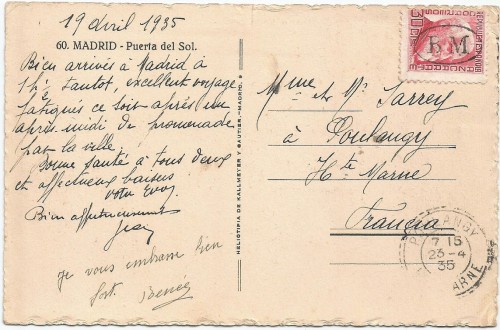 19 Avril 1935
60. MADRID - Puerta del Sol.
Bien arrivés à Madrid à
1h½ tantôt, excellent voyage
fatigués ce soir après une
après-midi de promenade
par la ville.
Bonne santé à tous deux
et affectueux baisers
votre
Bien affectueusement
Jean
Je vous embrasse bien
fort. Renée
HELIOTIPIA DE KALLMEYER Y GAUTIER.-MADRID.
REPUBLICA ESPAÑOLA
CORREOS
30 CTS
E M
Mme et Mr Sarrey
à Poulangy
Hte Marne
Francia
POULANGY
7 15
23-4
35
MARNE